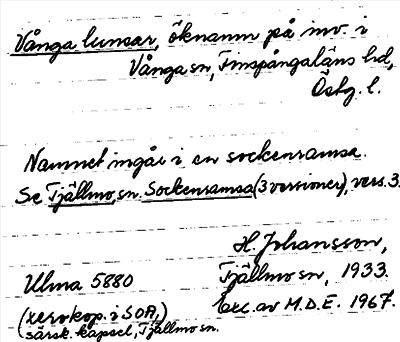 Vånga lunsar, öknamn på inv. i
Vånga sn, Finspångaläns hd,
Östg. l.
Namnet ingår i en sockenramsa.
Se Tjällmo, sn. Sockenramsa (3 versioner), vers. 3.
H. Johansson,
Ulma 5880
Tjällmo sn, 1933.
(xerokop. i SOA,)
särsk. kapsel, Tjällmo sn.
Exc. av M.D.E. 1967.